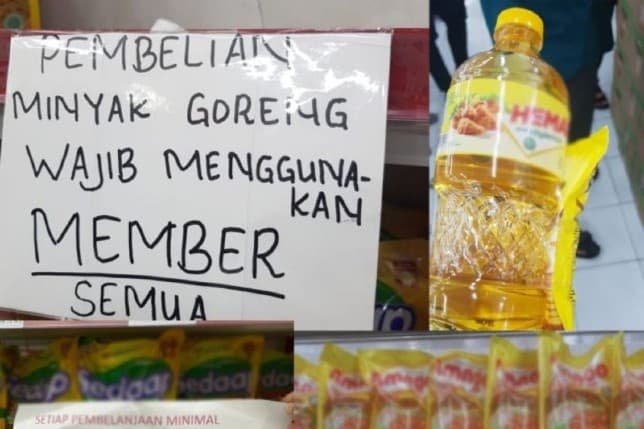 PEMBELIAN
MINYAK GORENG
WAJIB MENGGUNA-
KAN
MEMBER
SEMUA
HEMA
edaap
Sedaap
Sedaap
SETIAP PEMBELANJAAN MINIMAL